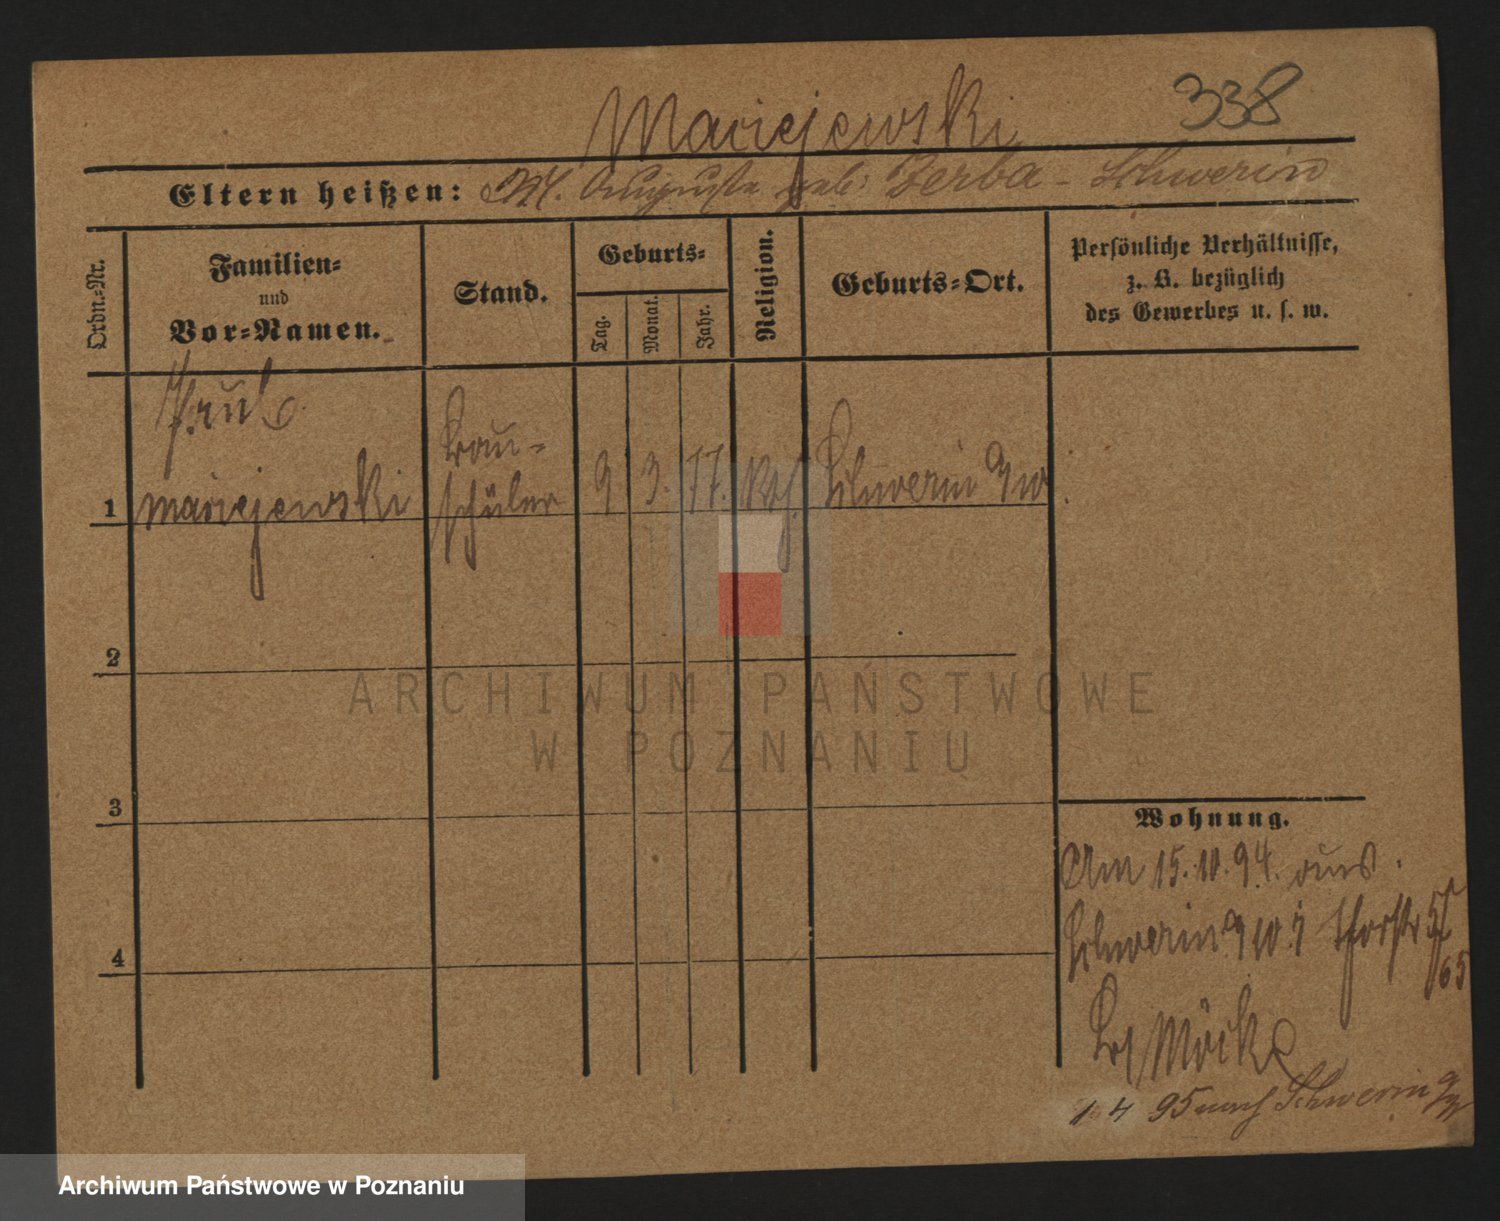 Maciejewski
338
Eltern heißen: M. Auguste geb: Zerba - Schwerin
Ordn.-Nr.
Familien-
und
Vor-Namen.
Stand.
Geburts-
Tag.
Monat.
Jahr.
Religion.
Geburts-Ort.
Persönliche Verhältnisse,
z. B. bezüglich
des Gewerbes u. s. w.
Paul
Bau-
1 Maciejewski schüler 9 3. 77. kth Schwerin a/w
2
ARCHIWUM PAŃSTWOWE
W POZNANIU
3
Wohnung.
Am 15.10.94. aus
Schwerin a/W
4
1. 4 95 nach Schwerin a/W
Archiwum Państwowe w Poznaniu